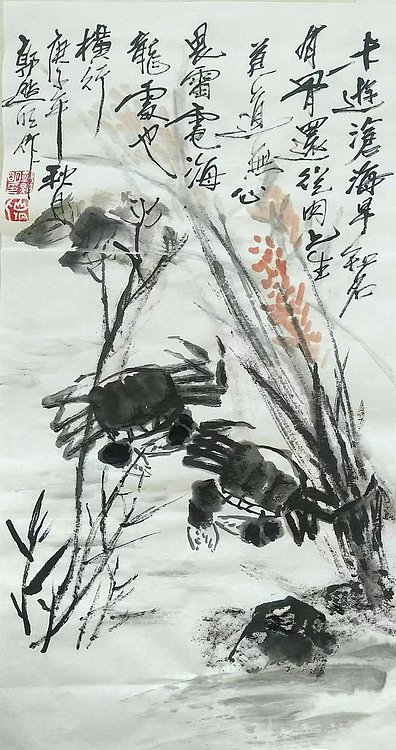 未遊滄海早知名
有骨還從肉上生
莫道無心
畏雷電海
龍處也
橫行
庚子年秋月
郭作